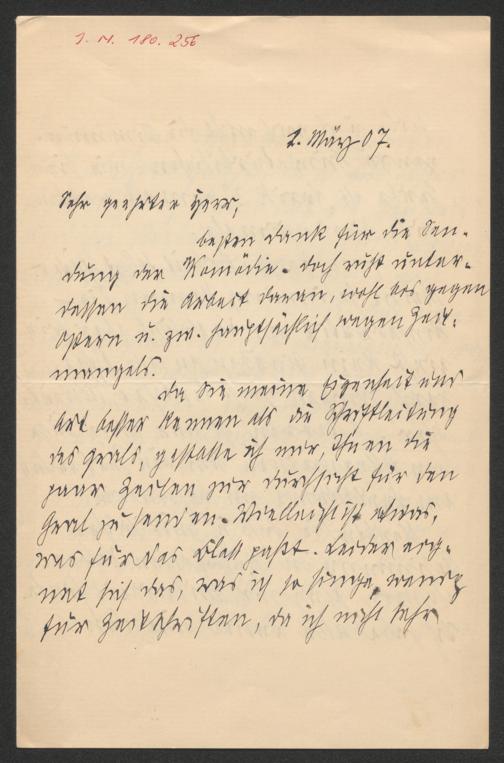 J. N. 180.256
2. März 07.
Sehr geehrter Herr,
besten Dank für die Sen-
dung der Komödie. Doch ruht unter-
dessen die Arbeit daran, wohl bis gegen
Ostern u. zw. hauptsächlich wegen Zeit-
mangels.
Da Sie meine Eigenheit und
Art besser kennen als die Schriftleitung
des Grals, gestatte ich mir, Ihnen die
paar Zeilen zur Durchsicht für den
Gral zu senden. Vielleicht ist etwas,
was für das Blatt paßt. Leider eig-
net sich das, was ich so singe, wenig
für Zeitschriften, da ich nicht sehr